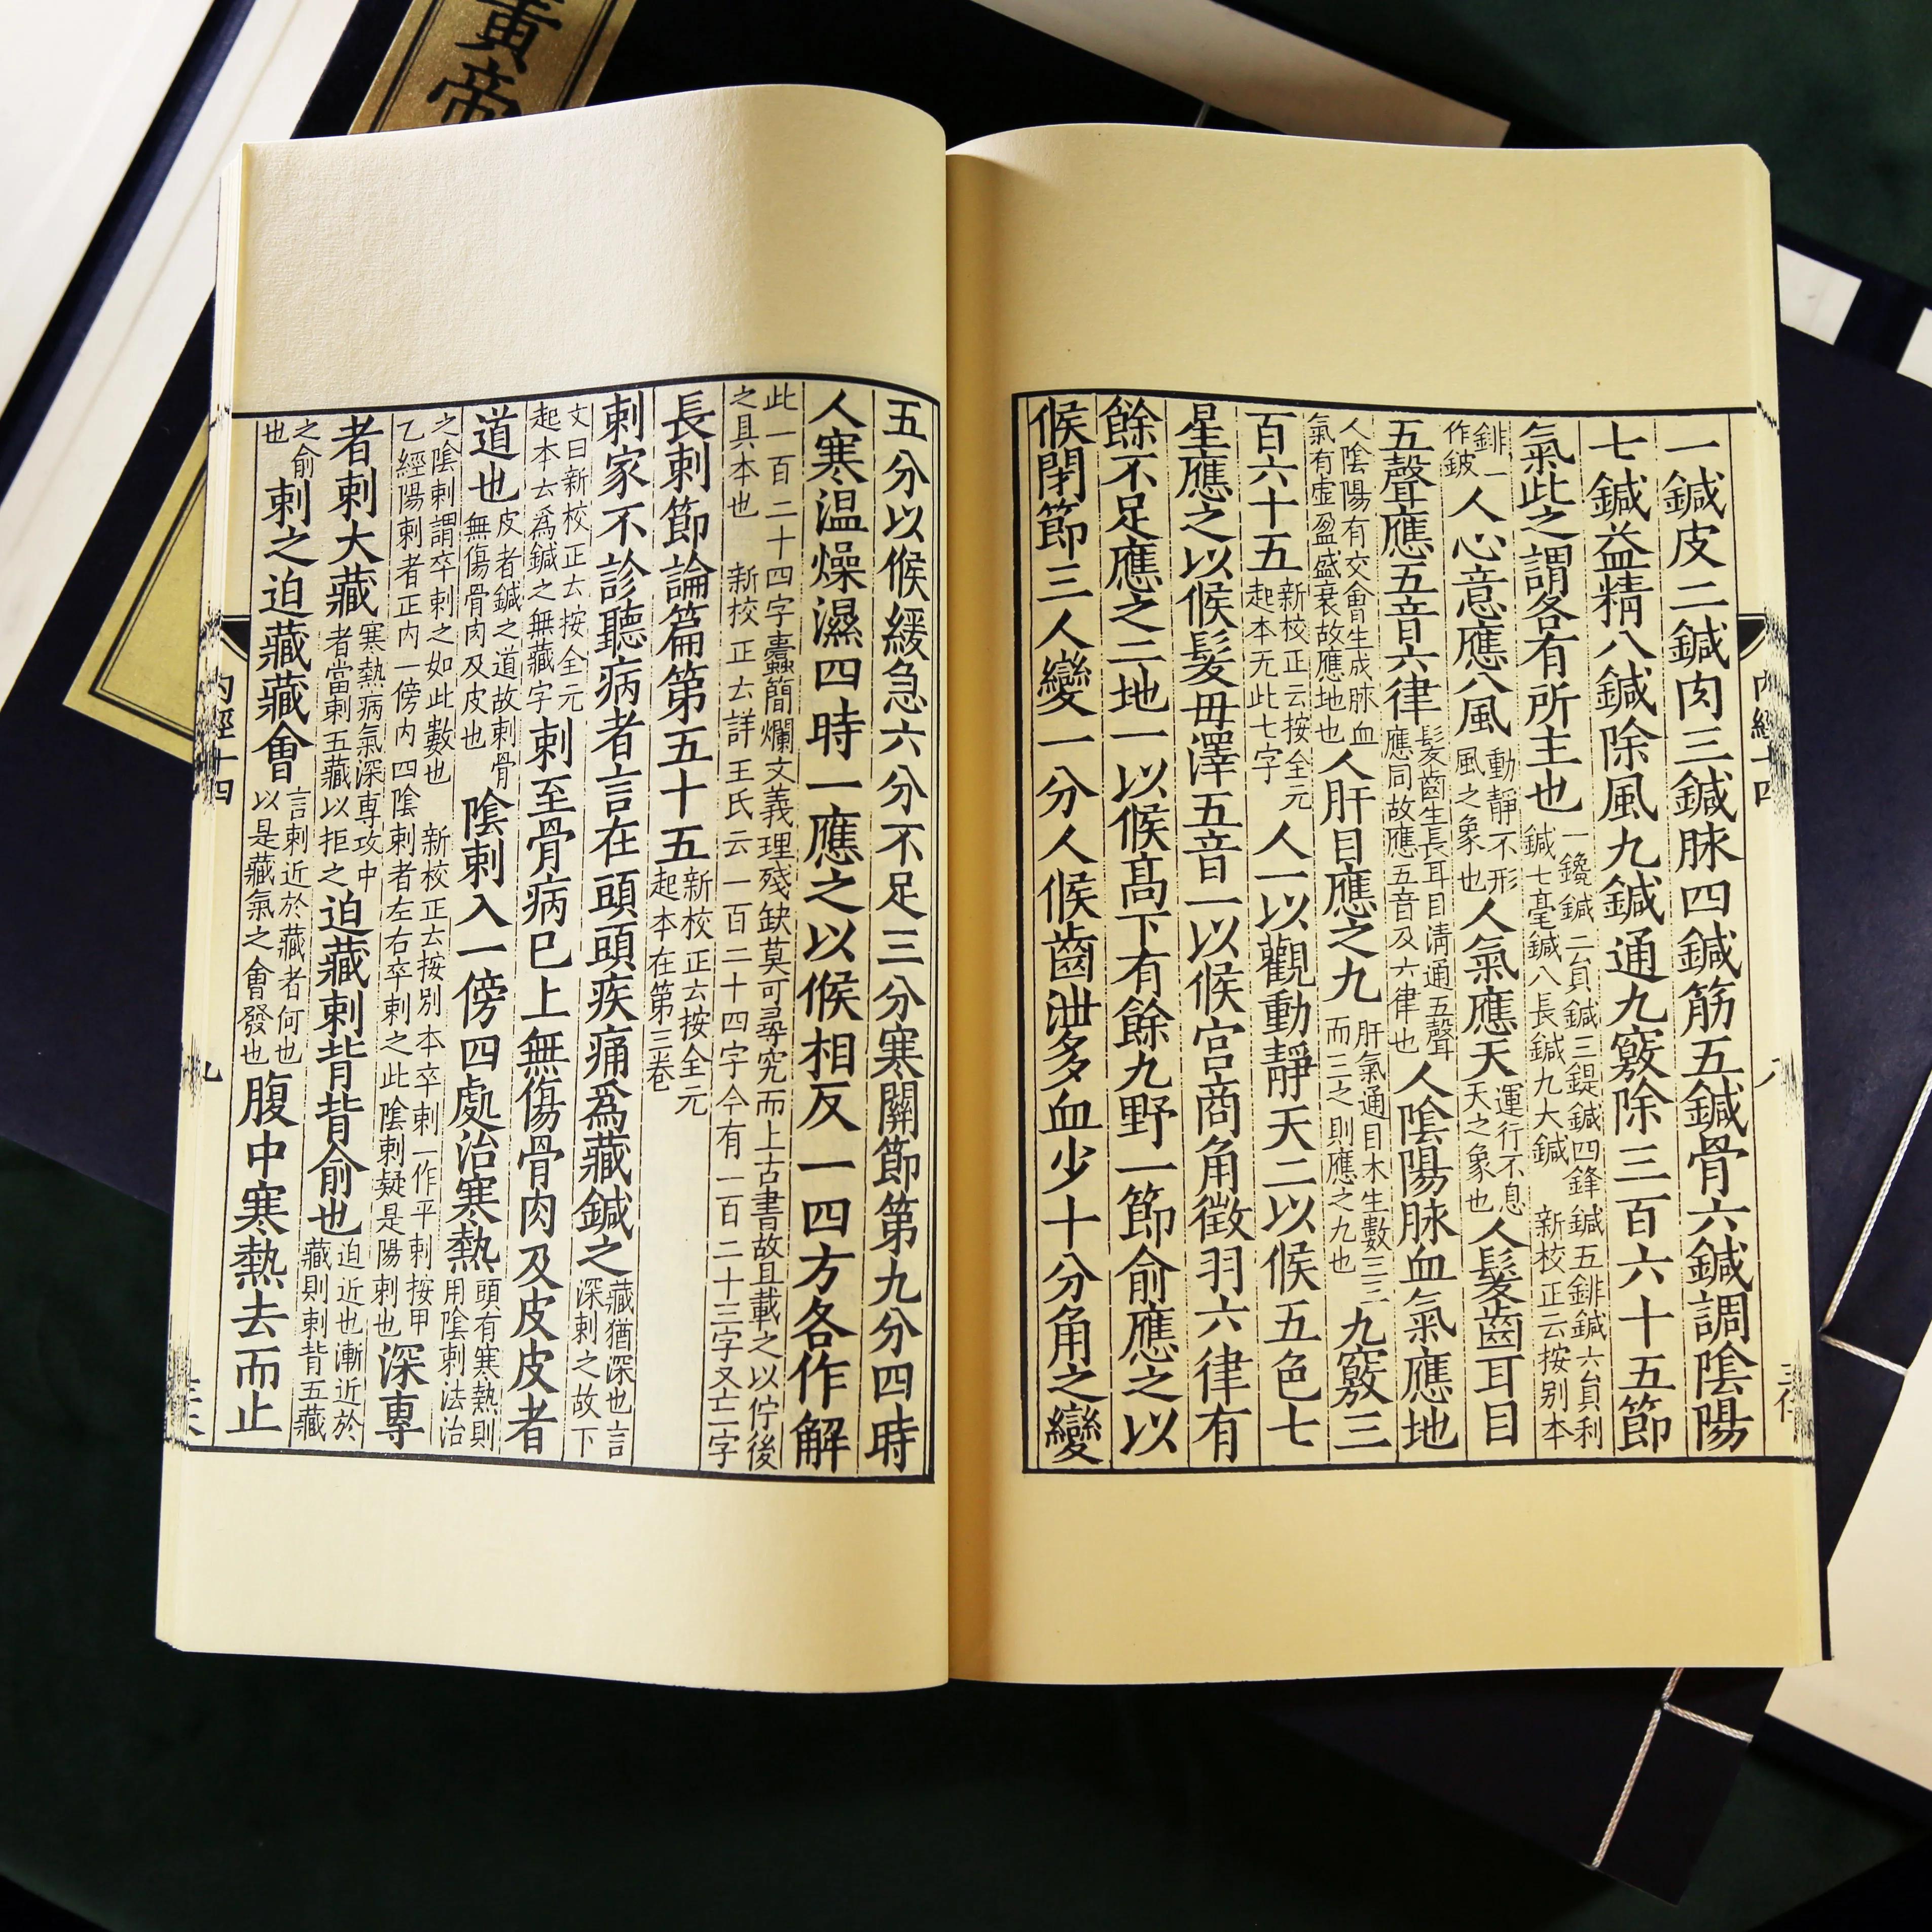 黃帝
内經十四
八
一鍼皮二鍼肉三鍼脉四鍼筋五鍼骨六鍼調陰陽
七鍼益精八鍼除風九鍼通九竅除三百六十五節
氣此之謂各有所主也一鑱鍼二員鍼三鍉鍼四鋒鍼五䤵鍼六員利鍼七毫鍼八長鍼九大鍼 新校正云按别本
䤵一作鈹人心意應八風動靜不形風之象也人氣應天運行不息天之象也人髮齒耳目
五聲應五音六律髮齒生長耳目清通五聲應同故應五音及六律也人陰陽脉血氣應地
人陰陽有交會生成脉血氣有虛盈盛衰故應地也人肝目應之九肝氣通目木生數三三而三之則應之九也九竅三
百六十五新校正云按全元起本无此七字人一以觀動靜天二以候五色七
星應之以候髮毋澤五音一以候宫商角徵羽六律有
餘不足應之二地一以候髙下有餘九野一節俞應之以
候閉節三人變一分人候齒泄多血少十分角之變
五分以候緩急六分不足三分寒關節第九分四時
人寒温燥濕四時一應之以候相反一四方各作解
此一百二十四字蠹簡爛文義理殘缺莫可尋究而上古書故且載之以佇後之具本也 新校正云詳王氏云一百二十四字今有一百二十三字又亡一字
長刺節論篇第五十五新校正云按全元起本在第三卷
刺家不診聽病者言在頭頭疾痛爲藏鍼之藏猶深也言深刺之故下
文曰新校正云按全元起本云爲鍼之無藏字刺至骨病已上無傷骨肉及皮皮者
道也皮者鍼之道故刺骨無傷骨肉及皮也陰刺入一傍四處治寒熱頭有寒熱則用陰刺法治
之陰刺謂卒刺之如此數也 新校正云按別本卒刺一作平刺按甲乙經陽刺者正内一傍内四陰刺者左右卒刺之此陰刺疑是陽刺也深專
者刺大藏寒熱病氣深專攻中者當刺五藏以拒之迫藏刺背背俞也迫近也漸近於藏則刺背五藏
之俞也刺之迫藏藏會言刺近於藏者何也以是藏氣之會發也腹中寒熱去而止
内經十四
九